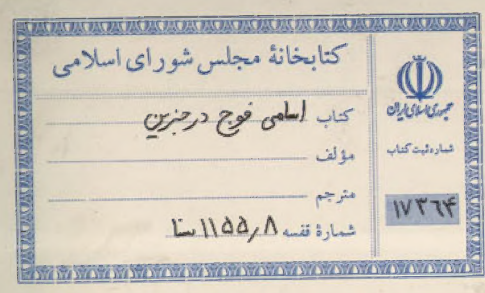 کتابخانهٔ مجلس شورای اسلامی
کتاب اسامی فوج درجزین
مؤلف
مترجم
شمارهٔ قفسه ۱۱۵۵٫۸ سنا
جمهوری اسلامی ایران
شماره ثبت کتاب
۱۷۳۶۴